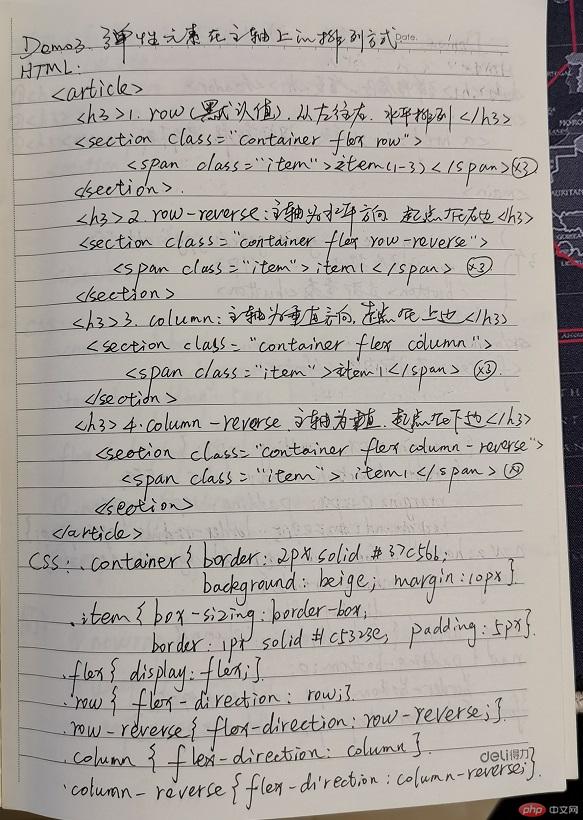 Demo3. 弹性元素在主轴上的排列方式 Date.
HTML:
<article>
<h3>1. row(默认值).从左往右.水平排列</h3>
<section class="container flex row">
<span class="item">item(1-3)</span> ×3
</section>.
<h3>2. row-reverse:主轴为水平方向 起点在右边<h3>
<section class="container flex row-reverse">
<span class="item">item1</span> ×3
</section>
<h3>3. column:主轴为垂直方向,起点在上边</h3>
<section class="container flex column">
<span class="item">item1</span> ×3
</section>
<h3>4.column-reverse 主轴为垂直.起点在下边</h3>
<section class="container flex column-reverse">
<span class="item">item1</span>
</section>
</article>
CSS: .container{ border: 2px solid #37c56b;
background: beige; margin:10px}
.item{ box-sizing:border-box;
border: 1px solid #c5323e, padding: 5px}.
.flex{ display: flex;}
.row{ flex-direction: row;}.
.row-reverse{ flex-direction: row-reverse;}.
.column { flex-direction: column}.
.column-reverse{flex-direction: column-reverse;}.
deli得力
php 中文网